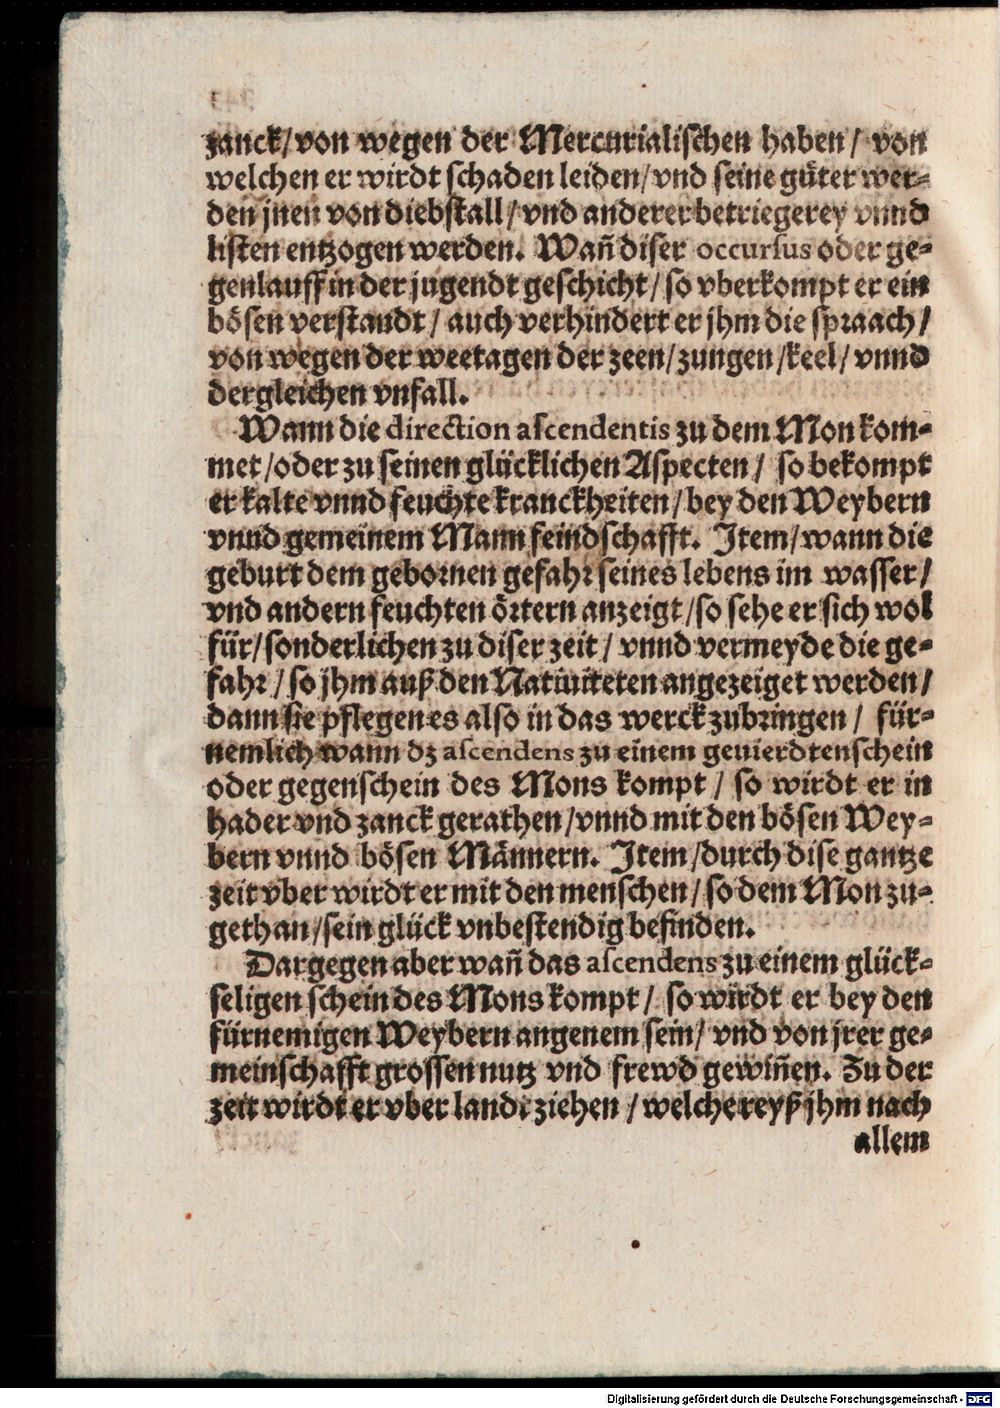 zanck/ von wegen der Mercurialischen haben/ von
welchen er wirdt schaden leiden/ vnd seine güter wer-
den jnen von diebstall/ vnd anderer betriegerey vnnd
listen entzogen werden. Wañ diser occursus oder ge-
genlauff in der jugendt geschicht/ so vberkompt er ein
bösen verstandt/ auch verhindert er jhm die spraach/
von wegen der weetagen der zeen/ zungen/ keel/ vnnd
dergleichen vnfall.
Wann die direction ascendentis zu dem Mon kom-
met/ oder zu seinen glücklichen Aspecten/ so bekompt
er kalte vnnd feuchte kranckheiten/ bey den Weybern
vnnd gemeinem Mann feindschafft. Item/ wann die
geburt dem gebornen gefahr seines lebens im wasser/
vnd andern feuchten örtern anzeigt/ so sehe er sich wol
für/ sonderlichen zu diser zeit/ vnnd vermeyde die ge-
fahr/ so jhm auß den Natiuiteten angezeiget werden/
dann sie pflegen es also in das werck zubringen/ für-
nemlich wann dz ascendens zu einem geuierdtenschein
oder gegenschein des Mons kompt/ so wirdt er in
hader vnd zanck gerathen/ vnnd mit den bösen Wey-
bern vnnd bösen Männern. Item/ durch dise gantze
zeit vber wirdt er mit den menschen/ so dem Mon zu-
gethan/ sein glück vnbestendig befinden.
Dargegen aber wañ das ascendens zu einem glück-
seligen schein des Mons kompt/ so wirdt er bey den
fürnemigen Weybern angenem sein/ vnd von jrer ge-
meinschafft grossen nutz vnd frewd gewiñen. Zu der
zeit wirdt er vber landt ziehen/ welche reyß jhm nach
allem
Digitalisierung gefördert durch die Deutsche Forschungsgemeinschaft - DFG